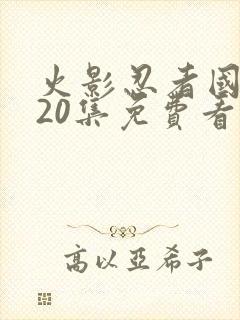 火影忍者國
20集免費看
高以亞希子